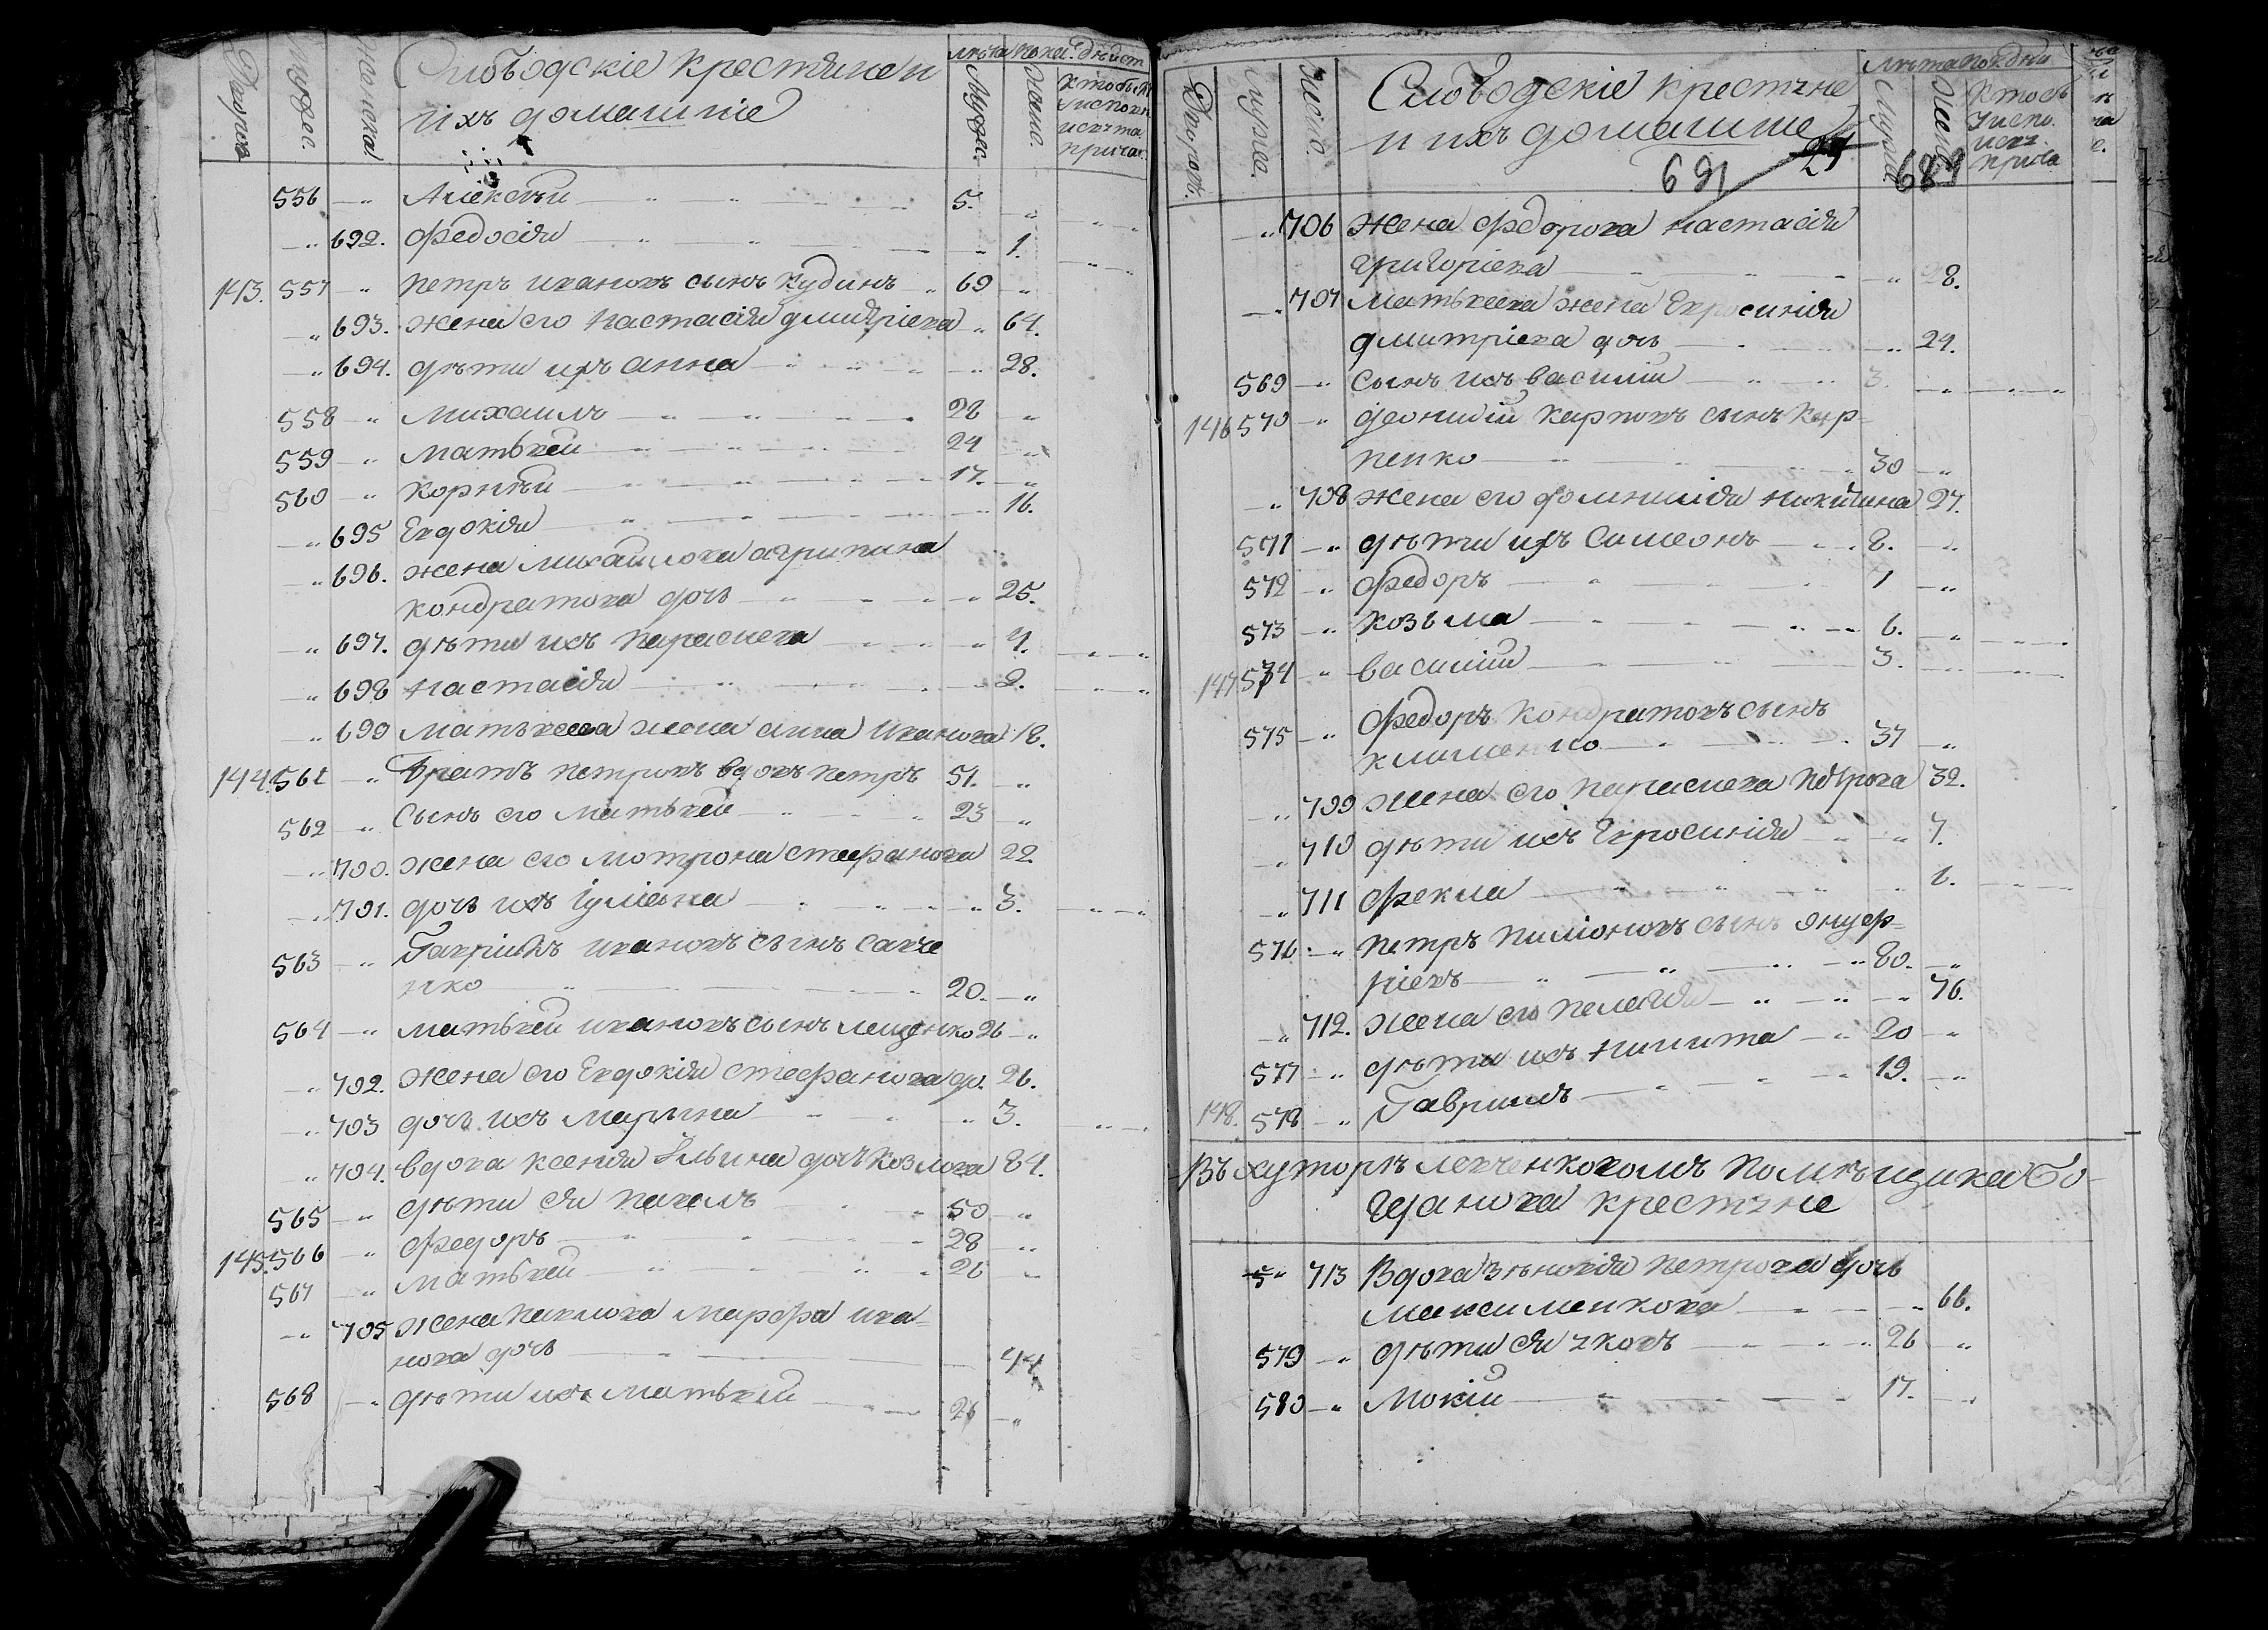 Двороваъ
Мужес.
Женска
Слободскіе крестяне и
ихъ домашніе
лѣта
Мужес.
Жено.
556 Алексѣй 5.
692. Федосія 1.
143. 557 Петръ Ивановъ сынъ Кудинъ 69
693. Жена его Настасія Дмитріева 64.
694. дѣти ихъ Анна 28.
558 Михаилъ 28
559 Матвей 24
560 Корнѣй 17.
695 Евдокія 16.
696. жена Михайлова Агрипина
Кондратова дочь 25.
697. дѣти ихъ Параскева 4.
698 Настасія 2.
699 Матвеева жена Анна Иванова 18.
144. 561 Братъ Петровъ вдовъ Петръ 51.
562 Сынъ его Матвей 23
700. жена его Мотрона Стефанова 22.
701. дочь ихъ Іуліяна 3.
563 Гавріилъ Ивановъ сынъ Савче
нко 20.
564 Матвей Ивановъ сынъ Лещенко 26
702. Жена его Евдокія Стефанова до. 26.
703 дочь ихъ Марина 3.
704. вдова Ксенія Ильина дочь Козлова 84.
565 дѣти ея Павелъ 50
145. 566 Федоръ 28
567 Матвей 26
705 жена Павлова Марфа Ива=
нова дочь 44
568 дѣти ихъ Матвей 26
Слободскіе крестяне
и ихъ домашніе
691 27 689
706 Жена Федорова Настасія
Григоріева 28.
707 Матвеева жена Евросинія
Дмитріева дочь 24.
569 Сынъ ихъ Василій 3.
146 570 Деонисій Карповъ сынъ Кар=
пенко 30
708 жена его Домникія Никитина 27.
571 дѣти ихъ Симеонъ 8.
572 Федоръ 7
573 Козьма 6.
147 574 Василий 3.
575 Федоръ Кондратовъ сынъ
Клименко 37
709 жена его Параскева Петрова 32.
710 дѣти ихъ Евросинія 7.
711 Фекла 6.
576 Петръ Пиміоновъ сынъ Онуф=
ріевъ 80.
712. Жена его Пелагія 76.
577 дѣти ихъ Никита 20
148. 578 Гавриилъ 19.
Въ хуторѣ Левченковомъ помѣщика Бо-
гданова крестяне
713 Вдова Зѣновія Петрова дочь
Максименкова 66.
579 дѣти ея Яковъ 26
580 Мокій 17.